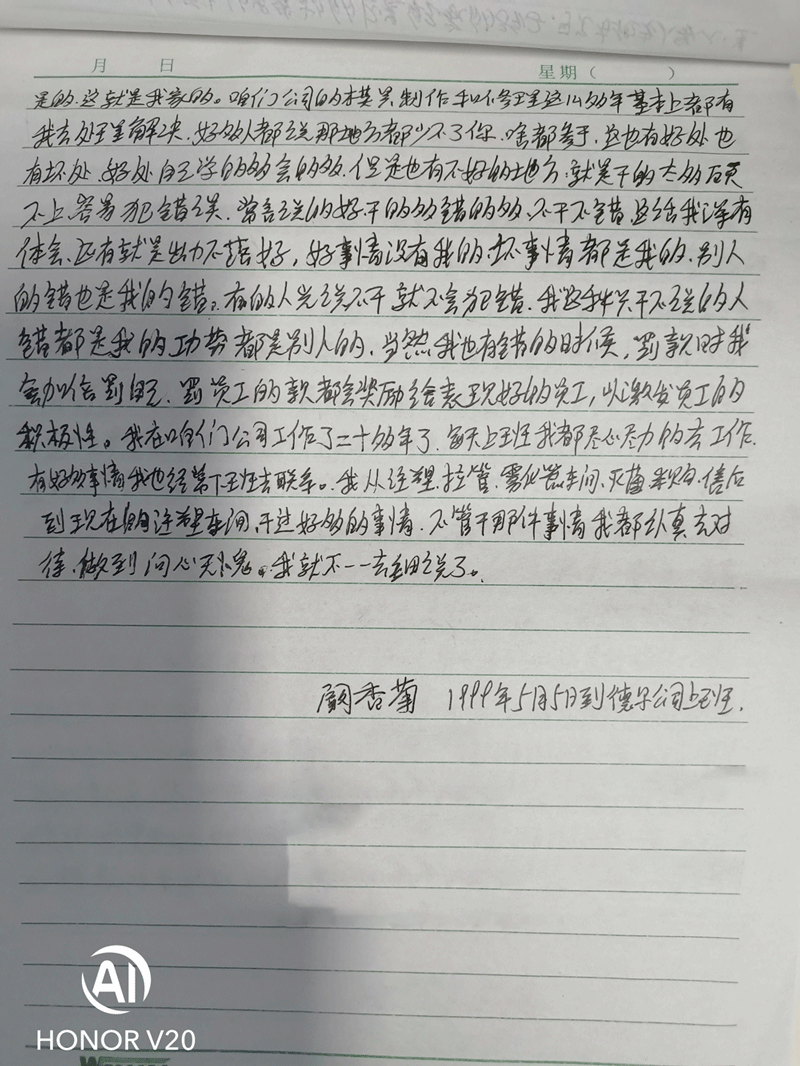 月 日 星期( )
是的.这就是我家的。咱们公司的模具制作和修理这14多年基本上都有
我去处理解决.好多人都说那地方都少不了你.啥都参于.这也有好处也
有坏处.好处自己学的多会的多.但是也有不好的地方.就是干的太多顾
不上.容易犯错误.常言说的好干的多错的多.不干不错.这话我深有
体会.还有就是出力不落好,好事情没有我的.坏事情都是我的.别人
的错也是我的错。有的人光说不干就不会犯错.我这种只干不说的人
错都是我的功劳都是别人的.当然我也有错的时候,罚款时我
会加倍罚自己.罚员工的款都会奖励给表现好的员工,以激发员工的
积极性。我在咱们公司工作了二十多年了.每天上班我都尽心尽力的去工作.
有好多事情我也经常下班去联系。我从注塑.拉管.雾化器车间.灭菌.采购.售后
到现在的注塑车间.干过好多的事情.不管干那件事情我都认真去对
待.做到问心无愧。我就不一一去细说了。
阚香菊 1999年5月5日到德尔公司上班.
AI
HONOR V20